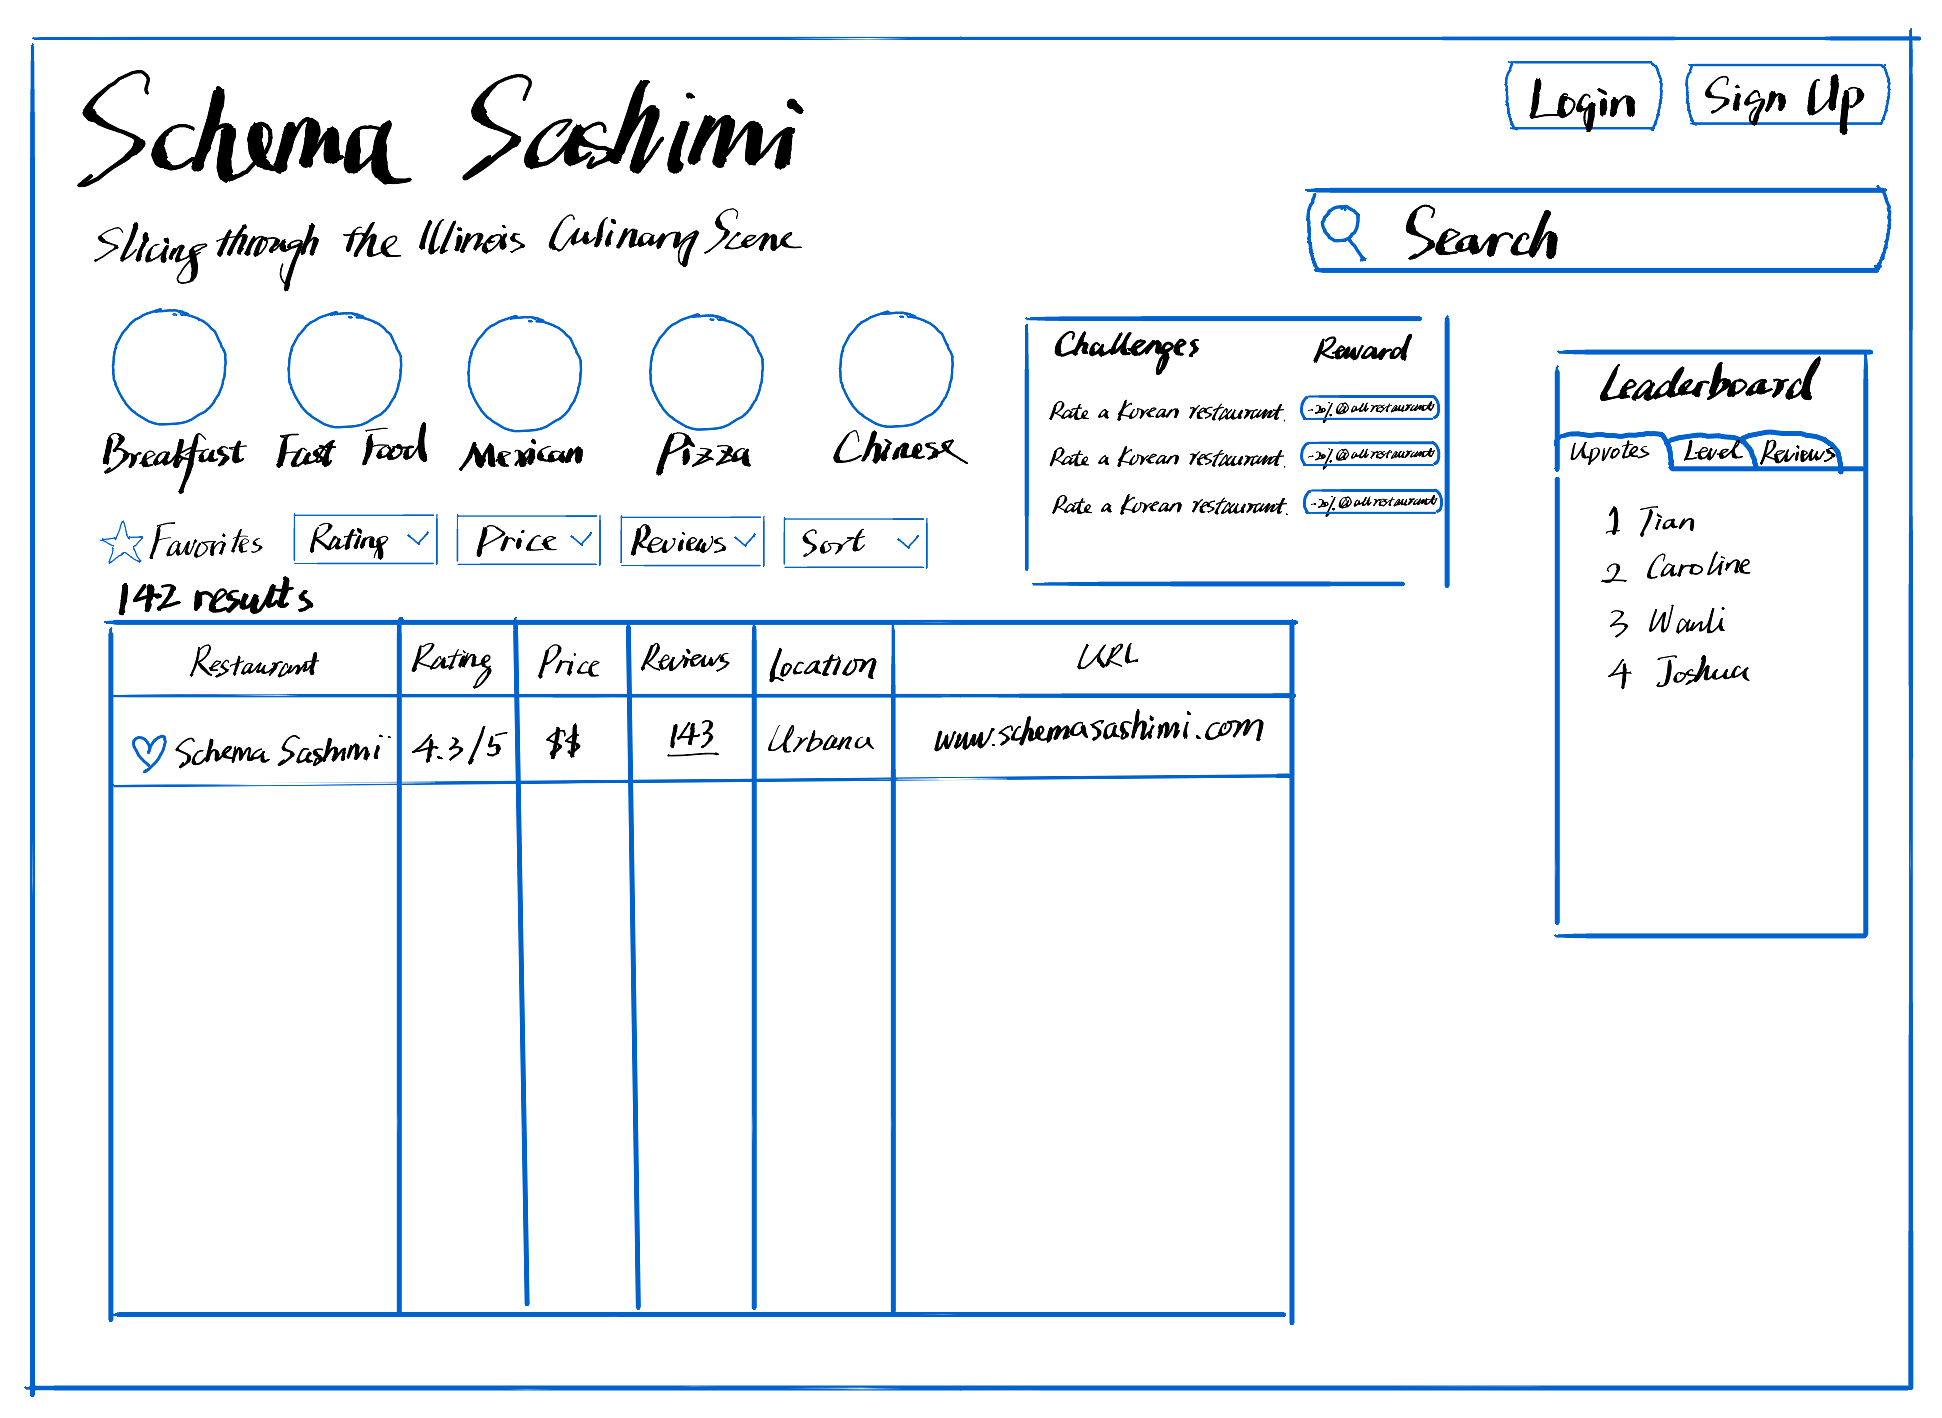 Schema Sashimi
Login
Sign Up
Slicing through the Illinois Culinary Scene
Search
Breakfast
Fast Food
Mexican
Pizza
Chinese
Challenges Reward
Rate a Korean restaurant. -20% @ all restaurants
Rate a Korean restaurant. -20% @ all restaurants
Rate a Korean restaurant. -20% @ all restaurants
Leaderboard
Upvotes Level Reviews
1 Tian
2 Caroline
3 Wanli
4 Joshua
Favorites
Rating
Price
Reviews
Sort
142 results
Restaurant Rating Price Reviews Location URL
Schema Sashimi 4.3/5 $$ 143 Urbana www.schemasashimi.com